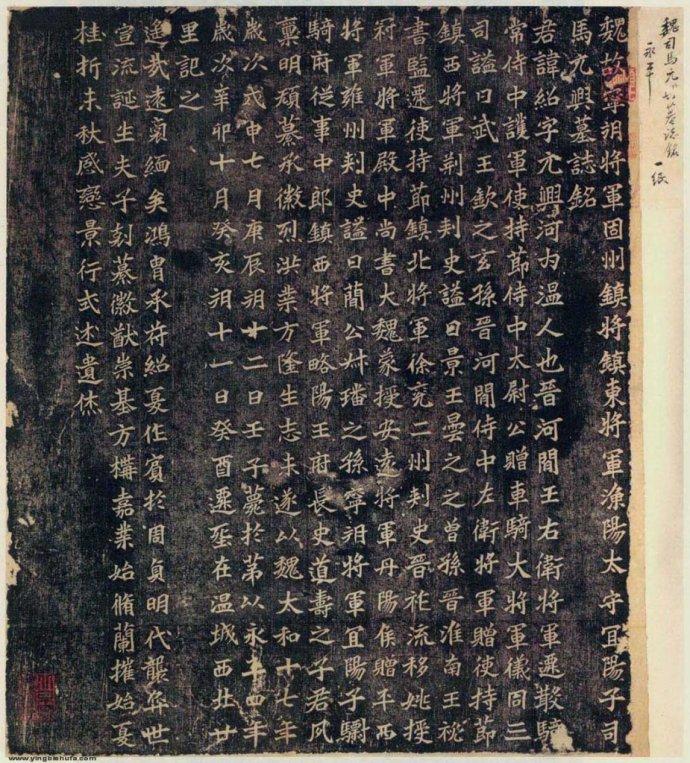 魏司馬元興墓誌銘 一紙
永平
魏故寧朔將軍固州鎮將鎮東將軍漁陽太守宜陽子司
馬元興墓誌銘
君諱紹字元興河内温人也晉河間王右衛將軍遷散騎
常侍中護軍使持節侍中太尉公贈車騎大將軍儀同三
司謚曰武王欽之玄孫晉河間侍中左衛將軍贈使持節
鎮西將軍荊州刺史謚曰景王曇之之曾孫晉淮南王祕
書監遷使持節鎮北將軍徐兗二州刺史晉祚流移姚授
冠軍將軍殿中尚書大魏蒙授安遠將軍丹陽侯贈平西
將軍雍州刺史謚曰蘭公叔璠之孫寧朔將軍宜陽子驃
騎府從事中郎鎮西將軍略陽王府長史道壽之子君夙
稟明頴纂承徽烈洪業方隆生志未遂以魏太和十七年
歲次戊申七月庚辰朔十二日壬子薨於第以永平四年
歲次辛卯十月癸亥朔十一日癸酉遷塟在温城西北廿
里記之
遥哉遠裔緬矣鴻胄承苻紹夏作賓於周貞明代襲弈世
宣流誕生夫子剋纂徽猷崇基方構嘉業始脩蘭摧始夏
桂折未秋感戀景行式述遺休
www.yingbishufa.com